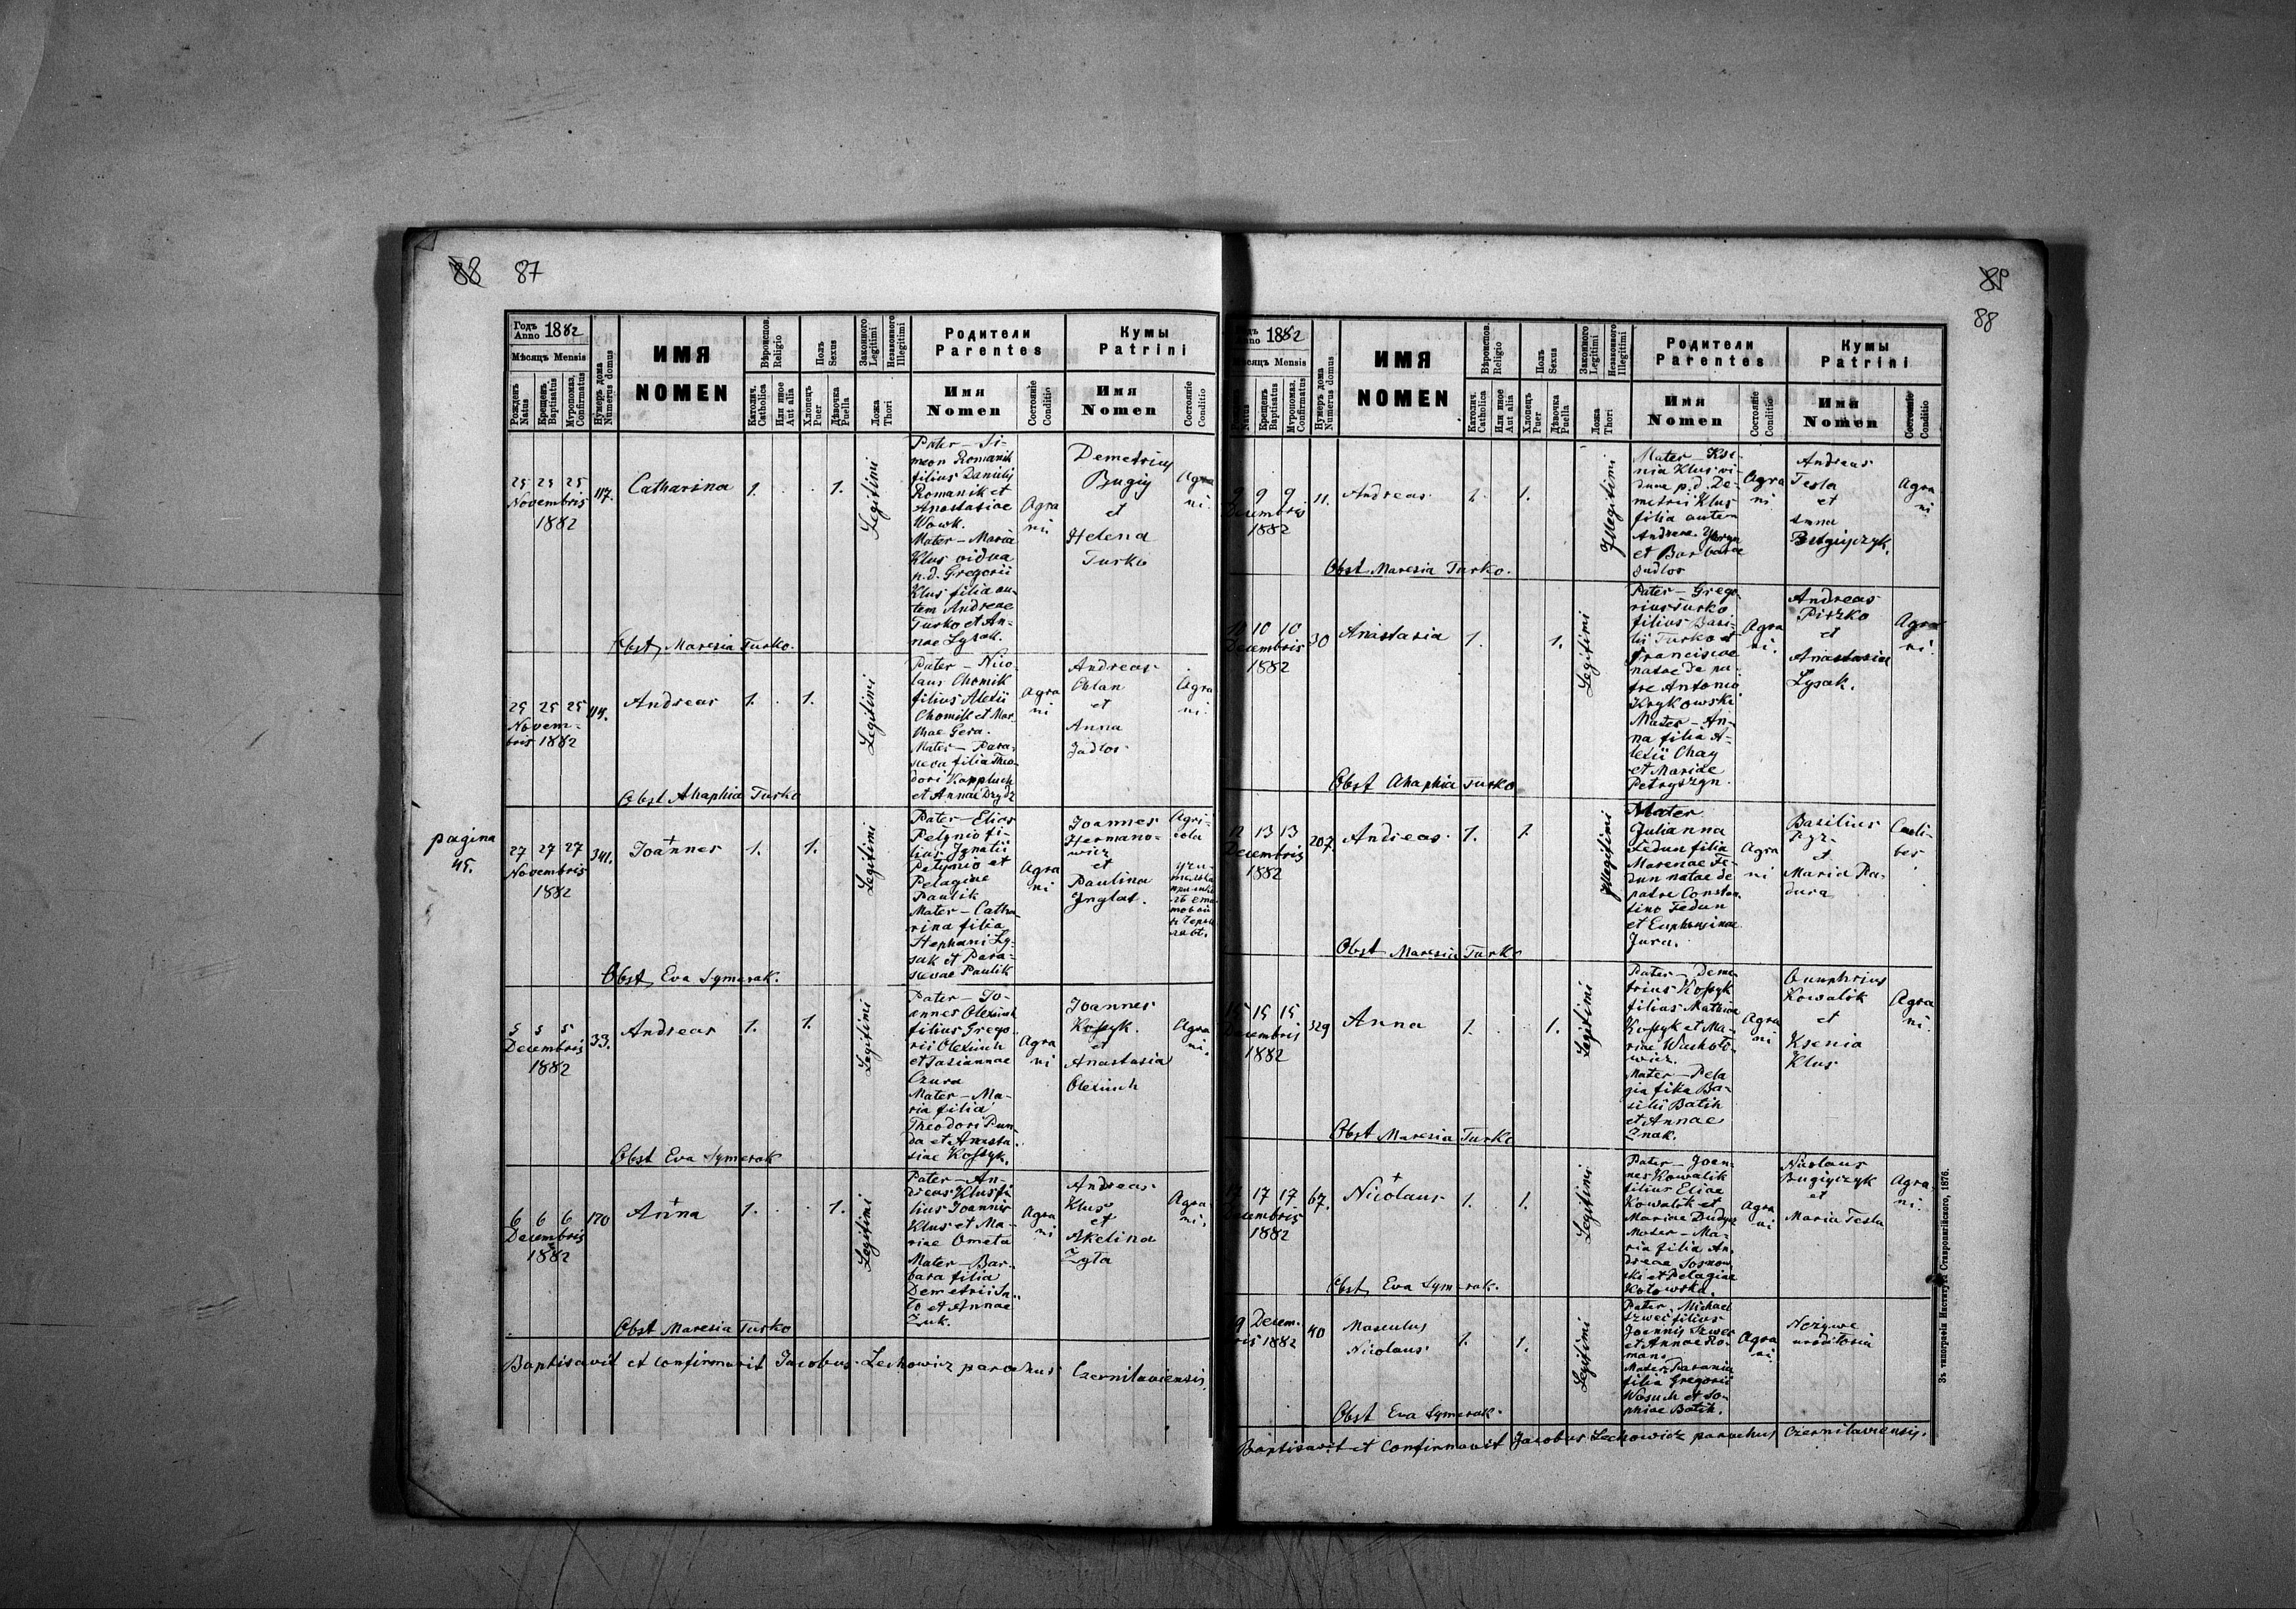 88 87
Годъ Anno 1882
Мѣсяцъ Mensis
Рожденъ Natus
Крещенъ. Baptisatus
Муропомаз. Confirmatus
Нумеръ дома Numerus domus
ИМЯ
NOMEN
Вѣроиспов. Religio
Католич. Catholica
Или иное Aut alia
Полъ Sexus
Хлопецъ Puer
Дѣвочка Puella
Законного Legitimi
Незаконного Illegitimi
Ложа Thori
Родители
Parentes
Имя
Nomen
Состояніе Conditio
Кумы
Patrini
Имя
Nomen
Состояніе Conditio
25 25 25
Novembris
1882
117.
Catharina
1.
1.
Legitimi
Pater – Si-
meon Romanik
filius Danielis
Romanik et
Anastasiae
Wowk.
Mater – Maria
Klus vidua
p.d. Gregorii
Klus filia au-
tem Andreae
Turko et An-
nae Lysak.
Agra
ni.
Demetrius
Bugiy
et
Helena
Turko
Agra
ni.
Obst. Maresia Turko.
25 25 25
Novem-
bris 1882
Andreas
1.
1.
Legitimi
Pater – Nico-
laus Chomik
filius Alexii
Chomik et Mar-
thae Gera.
Mater – Para-
sceva filia Theo-
dori
et Annae Dzydz
Agra
ni
Andreas
Chlan
et
Anna
Jadlos
Agra
ni.
Obst Ahaphia Turko
pagina
45.
27 27 27
Novembris
1882
341.
Joannes
1.
1.
Legitimi
Pater – Elias
Petynio fi-
lius Ignatii
Petynio et
Pelagiae
Paulik
Mater – Catha-
rina filia
Stephani Ly-
sak et Para-
scevae Paulik
Agra
ni
Joannes
Hermano-
wicz
et
Paulina
Inglot.
Agri-
cola
Obst. Eva Symerak.
5 5 5
Decembris
1882
33.
Andreas
1.
1.
Legitimi
Pater – Jo-
annes Olexiuch
filius Grego-
rii Olexiuch
et Tatiannae
Czura
Mater – Ma-
ria filia
Theodori Pun-
da et Anasta-
siae Kossyk.
Agra
ni
Joannes
Kossyk.
et
Anastasia
Olexiuch
Agra
ni.
Obst Eva Symerak
6 6 6
Decembris
1882
170
Anna
1.
1.
Legitimi
Pater – An-
dreas Klus fi-
lius Joannis
Klus et Ma-
riae Ometa
Mater – Bar-
bara filia
Demetrii Sa-
lo et Annae
Zuk.
Agra
ni
Andreas
Klus
et
Akelina
Zyta
Agra
ni.
Obst Maresia Turko
Baptisavit et confirmavit Jacobus Lechowicz parochus Czernilaviensis.
88
Годъ Anno 1882
Мѣсяцъ Mensis
Natus
Крещенъ. Baptisatus
Муропомаз. Confirmatus
Нумеръ дома Numerus domus
ИМЯ
NOMEN
Вѣроиспов. Religio
Католич. Catholica
Или иное Aut alia
Полъ Sexus
Хлопецъ Puer
Дѣвочка Puella
Законного Legitimi
Незаконного Illegitimi
Ложа Thori
Родители
Parentes
Имя
Nomen
Состояніе Conditio
Кумы
Patrini
Имя
Nomen
Состояніе Conditio
9 9 9
Decembris
1882
11.
Andreas
1.
1.
Illegitimi
Mater – Kse-
nia Klus vi-
dua p.d. De-
metrii Klus
filia autem
Andreae
et Barbarae
Agra
ni
Andreas
Testa
et
Anna
Bugiyczyk.
Agra
ni
Obst Maresia Turko.
10 10 10
Decembris
1882
30
Anastasia
1.
1.
Legitimi
Pater – Grego-
rius Turko
filius Basi-
lii Turko et
Franciscae
natae de pa-
tre Antonio
Krykowski
Mater – An-
na filia A-
lexii Chay
et Mariae
Petryszyn.
Agra
ni.
Andreas
Pitzko
et
Anastasia
Lysak.
Agra
ni.
Obst Ahaphia Turko
12 13 13
Decembris
1882
207.
Andreas
1.
1.
Illegitimi
Mater
Julianna
Fedun filia
Marenae Fe-
dun natae de
patre Constan-
tino Fedun
et Euphrosinae
Jura.
Agra
ni
Basilius
Pyz
et
Maria Pa-
dura
Caeli-
bes
Obst Maresia Turko
15 15 15
Decembris
1882
329
Anna
1.
1.
Legitimi
Pater – Deme-
trius Kossyk
filius Mathiae
Kossyk et Ma-
riae
wicz.
Mater – Pela-
gia filia Ba-
silii Batih
et Annae
Znak.
Agra
ni
Onuphrius
Kowalik
et
Ksenia
Klus
Agra
ni.
Obst Maresia Turko
17 17 17
Decembris
1882
67.
Nicolaus
1.
1.
Legitimi
Pater – Joan-
nes Kowalik
filius Eliae
Kowalik et
Marinae Dudycz
Mater – Ma-
ria filia An-
dreae Sosnow-
ski et Pelagiae
Kotowska.
Agra
ni
Nicolaus
Bugiyczyk
et
Maria Testa
Agra
ni.
Obst. Eva Symerak.
19 Decem-
bris 1882
40
Masculus
Nicolaus
1.
1.
Legitimi
Pater. Michael
Szwec filius
Joannis Szwec
et Annae Ro-
man.
Mater Parania
filia Gregorii
Wosuch et So-
phiae Batih.
Agra
ni.
Nezywe
uroditosia
Obst Eva Symerak.
Baptisavit et confirmavit Jacobus Lechowicz parochus Czernilaviensis.
Зъ типографіи Института Ставропигійского, 1876.